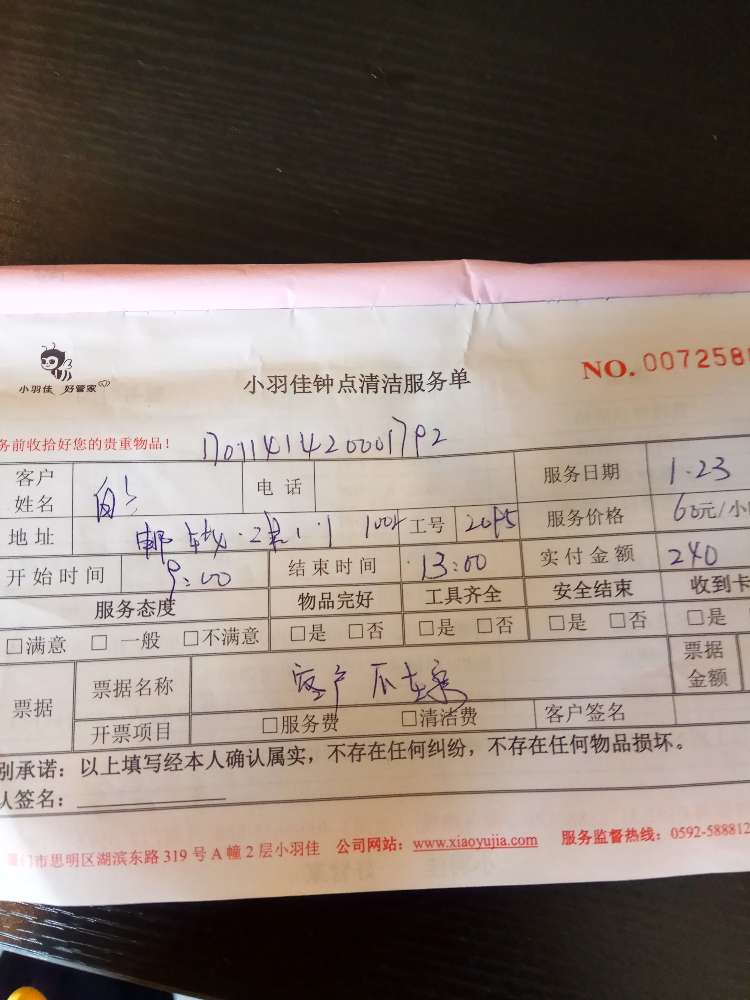 小羽佳 好管家
小羽佳钟点清洁服务单
NO. 0072581
务前收拾好您的贵重物品！
客户姓名 电 话 服务日期 1.23
地址 1002 工号 服务价格 60元/小
开始时间 9:00 结束时间 13:00 实付金额 240
服务态度 物品完好 工具齐全 安全结束 收到卡
□满意 □ 一般 □不满意 □是 □否 □是 □否 □是 □否 □是
票据 票据名称 客户不在家 票据金额
开票项目 □服务费 □清洁费 客户签名
别承诺：以上填写经本人确认属实，不存在任何纠纷，不存在任何物品损坏。
人签名：
门市思明区湖滨东路 319 号 A 幢 2 层小羽佳 公司网站：www.xiaoyujia.com 服务监督热线：0592-588812